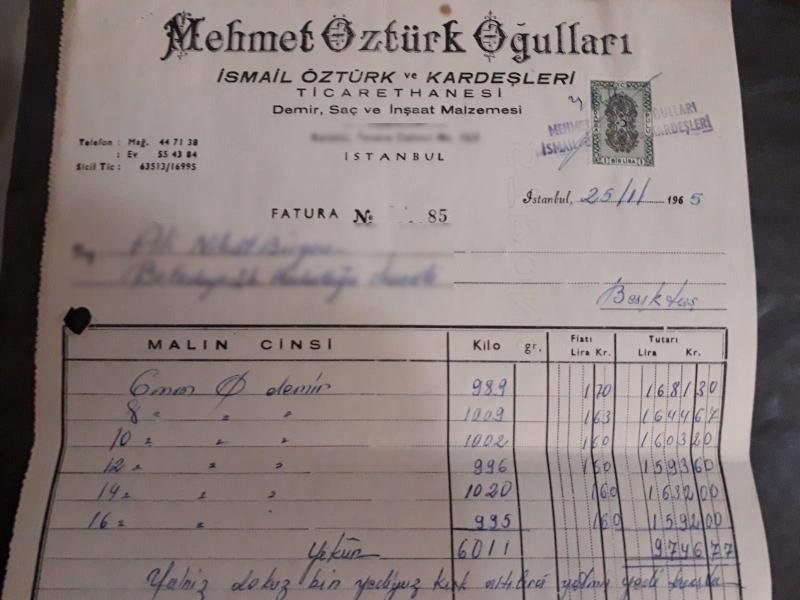 Mehmet Öztürk Oğulları
İSMAİL ÖZTÜRK ve KARDEŞLERİ
TİCARETHANESİ
Demir, Saç ve İnşaat Malzemesi
İSTANBUL
Telefon : Mağ. 44 71 38
: Ev 55 43 84
Sicil Tic : 63513/16995
MEHMET OĞULLARI
İSMAİL KARDEŞLERİ
BİR LİRA
İstanbul, 25/1/ 1965
FATURA № 85
Beşiktaş
MALIN CİNSİ Kilo gr. Fiatı Lira Kr. Tutarı Lira Kr.
6mm Ø demir 989 1 70 1681 30
8 " " " 1009 1 63 1644 67
10 " " " 1002 1 60 1603 20
12 " " " 996 1 60 1593 60
14 " " " 1020 1 60 1632 00
16 " " 995 1 60 1592 00
Yekün 6011 9746 77
Yalnız dokuz bin yediyüz kırk altılira yetmiş yedi